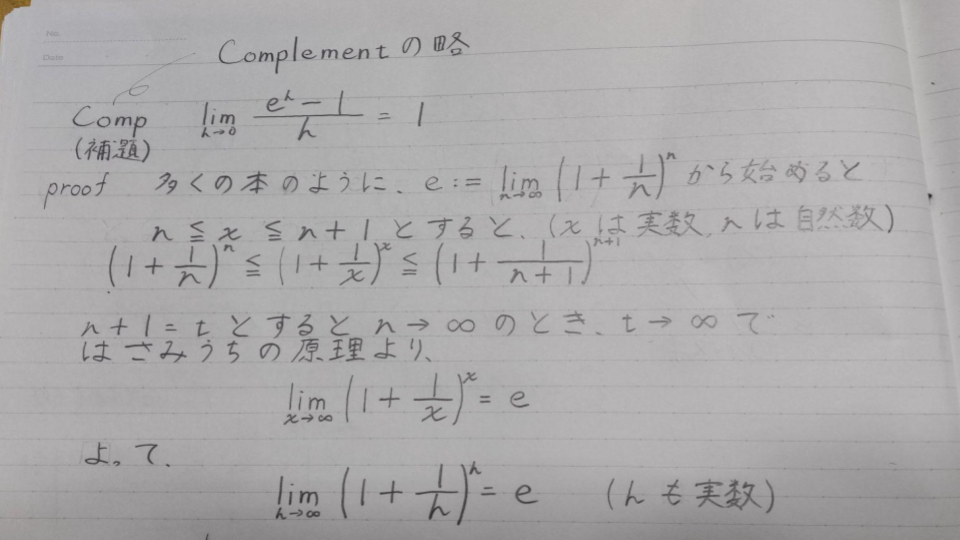 No.
Date
Complementの略
Comp lim_{h→0} (e^h − 1)/h = 1
(補題)
proof 多くの本のように、e := lim_{n→∞} (1 + 1/n)^n から始めると
n ≦ x ≦ n + 1 とすると、(xは実数, nは自然数)
(1 + 1/n)^n ≦ (1 + 1/x)^x ≦ (1 + 1/(n + 1))^{n+1}
n + 1 = t とすると n → ∞ のとき、t → ∞ で
はさみうちの原理より、
lim_{x→∞} (1 + 1/x)^x = e
よって、
lim_{h→∞} (1 + 1/h)^h = e (hも実数)